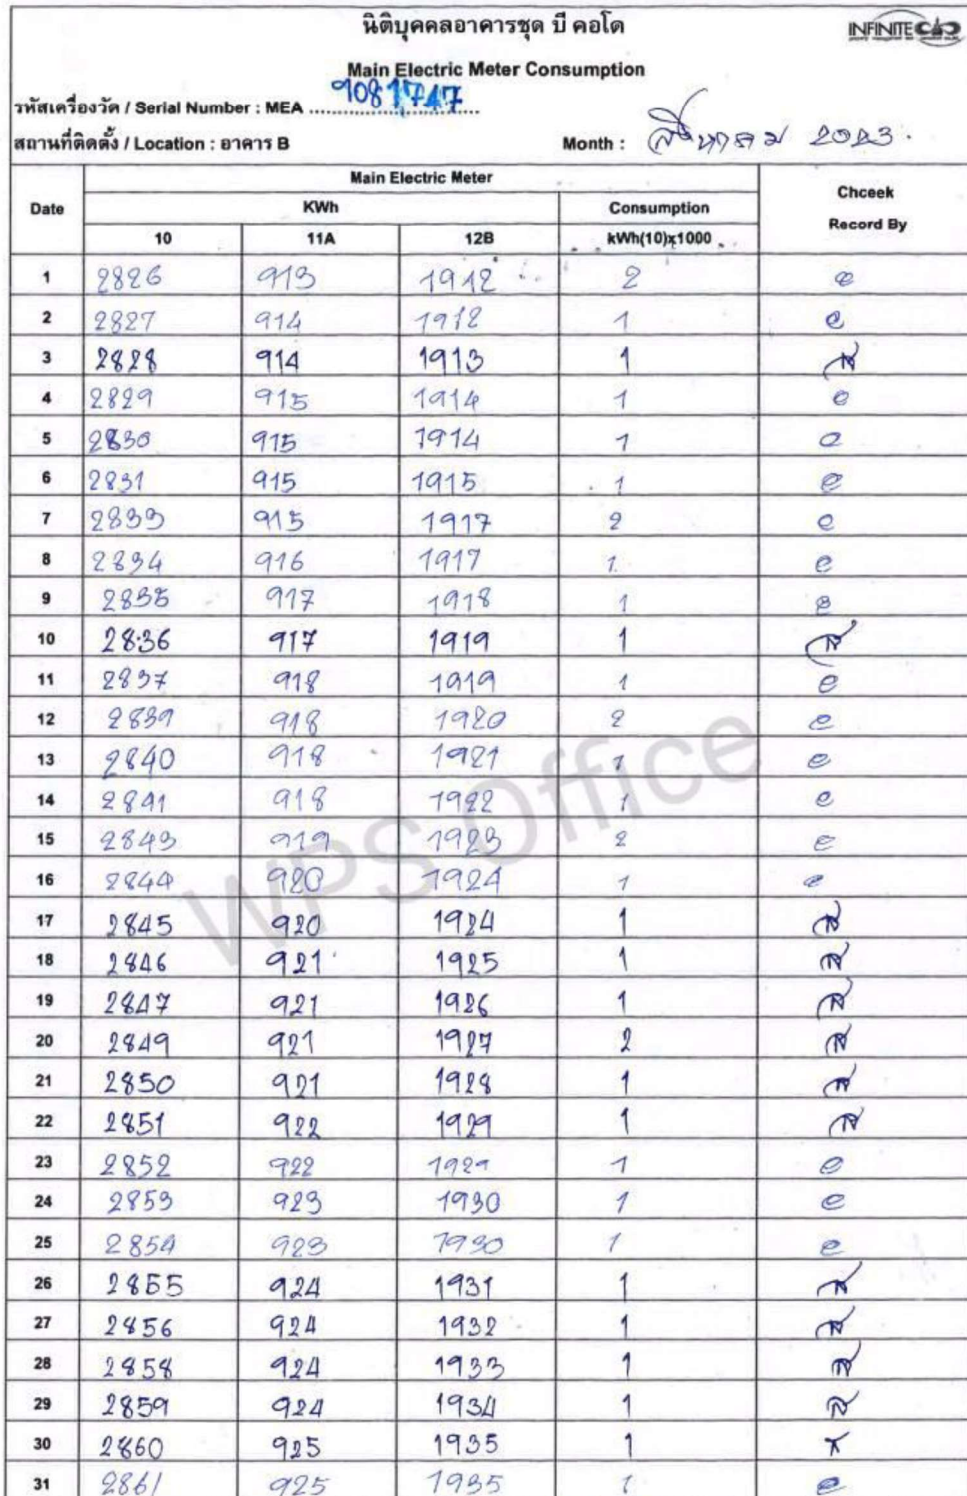 นิติบุคคลอาคารชุด บี คอโด
INFINITE
Main Electric Meter Consumption
รหัสเครื่องวัด / Serial Number : MEA 9081747
สถานที่ติดตั้ง / Location : อาคาร B Month : สิงหาคม 2023.
Main Electric Meter
Date KWh Consumption Chceek Record By
10 11A 12B kWh(10)x1000
1 2826 913 1912 2 e
2 2827 914 1912 1 e
3 2828 914 1913 1 ส
4 2829 915 1914 1 e
5 2830 915 1914 1 e
6 2831 915 1915 1 e
7 2833 915 1917 2 e
8 2834 916 1917 1 e
9 2835 917 1918 1 e
10 2836 917 1919 1 ส
11 2837 918 1919 1 e
12 2839 918 1920 2 e
13 2840 918 1921 1 e
14 2841 918 1922 1 e
15 2843 919 1923 2 e
16 2844 920 1924 1 e
17 2845 920 1924 1 ส
18 2846 921 1925 1 ส
19 2847 921 1926 1 ส
20 2849 921 1927 2 ส
21 2850 921 1928 1 ส
22 2851 922 1929 1 ส
23 2852 922 1929 1 e
24 2853 923 1930 1 e
25 2854 923 1930 1 e
26 2855 924 1931 1 ส
27 2856 924 1932 1 ส
28 2858 924 1933 1 ส
29 2859 924 1934 1 ส
30 2860 925 1935 1
31 2861 925 1935 1 e
WPS Office